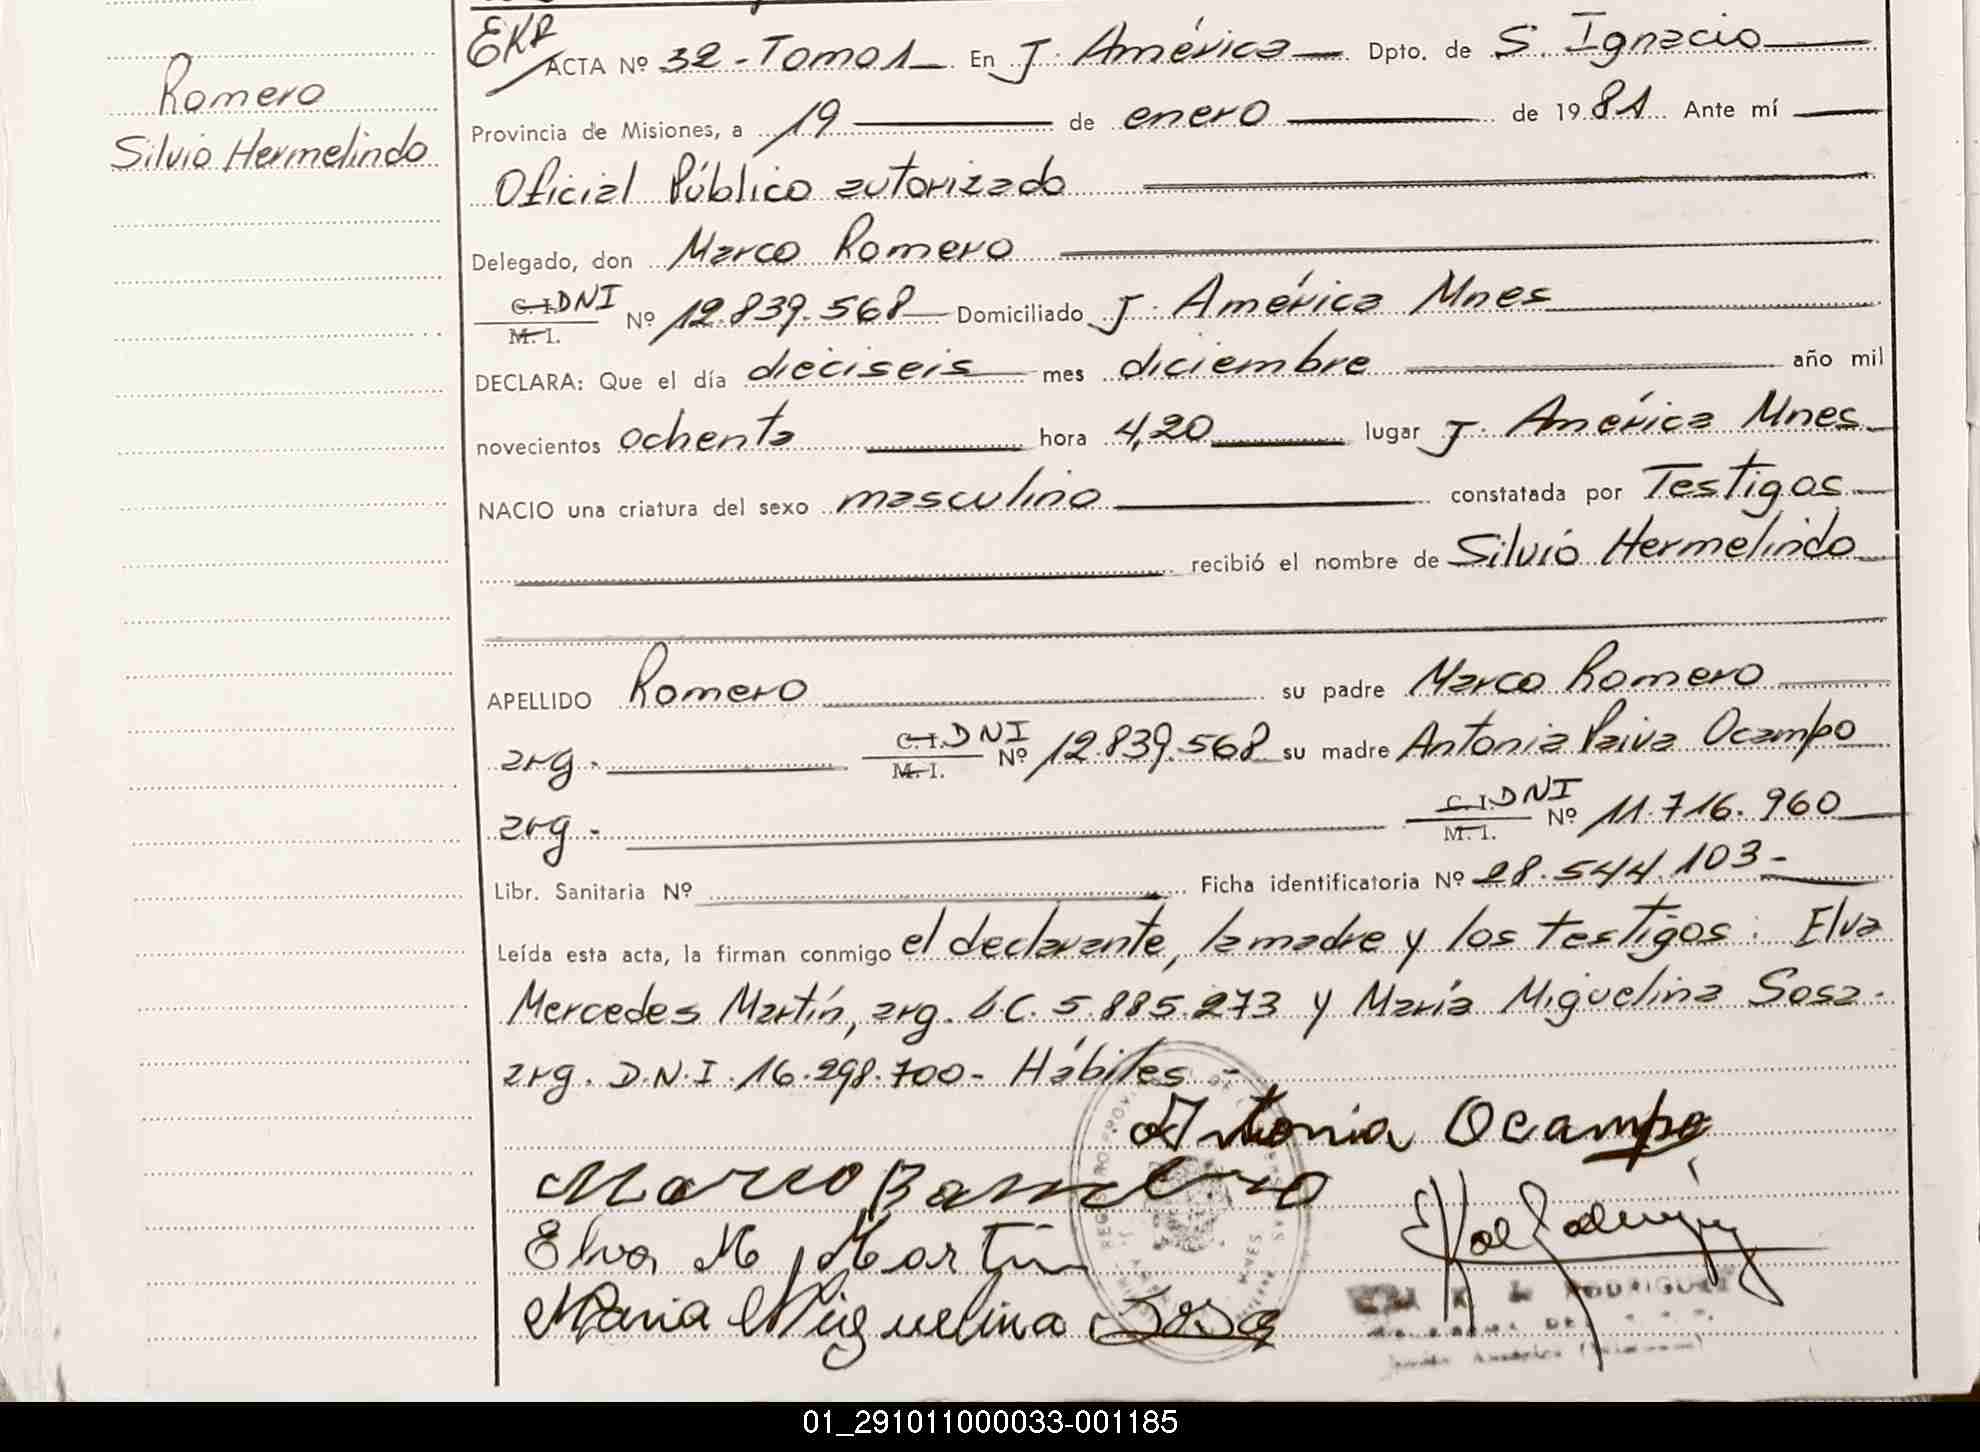 Romero
Silvio Hermelindo
EKR
ACTA Nº 32 - Tomo 1 En J. América Dpto. de S. Ignacio
Provincia de Misiones, a 19 de enero de 1981 Ante mí
Oficial Público autorizado
Delegado, don Marco Romero
C. I. DNI
M. I. Nº 12.839.568 Domiciliado J. América Mnes
DECLARA: Que el día dieciseis mes diciembre año mil
novecientos ochenta hora 4,20 lugar J. América Mnes
NACIO una criatura del sexo masculino constatada por Testigos
recibió el nombre de Silvio Hermelindo
APELLIDO Romero su padre Marco Romero
arg. C. I. DNI M. I. Nº 12.839.568 su madre Antonia Paiva Ocampo
arg. C. I. DNI M. I. Nº 11.716.960
Libr. Sanitaria Nº Ficha identificatoria Nº 28.544.103-
Leída esta acta, la firman conmigo el declarante, la madre y los testigos: Elva
Mercedes Martín, arg. LC. 5.885.273 y María Miguelina Sosa.
arg. D.N.I. 16.298.700- Hábiles -
Antonia Ocampo
Marco Romero
Elva M. Martín
Maria Miguelina Sosa
RODRIGUEZ
01_291011000033-001185